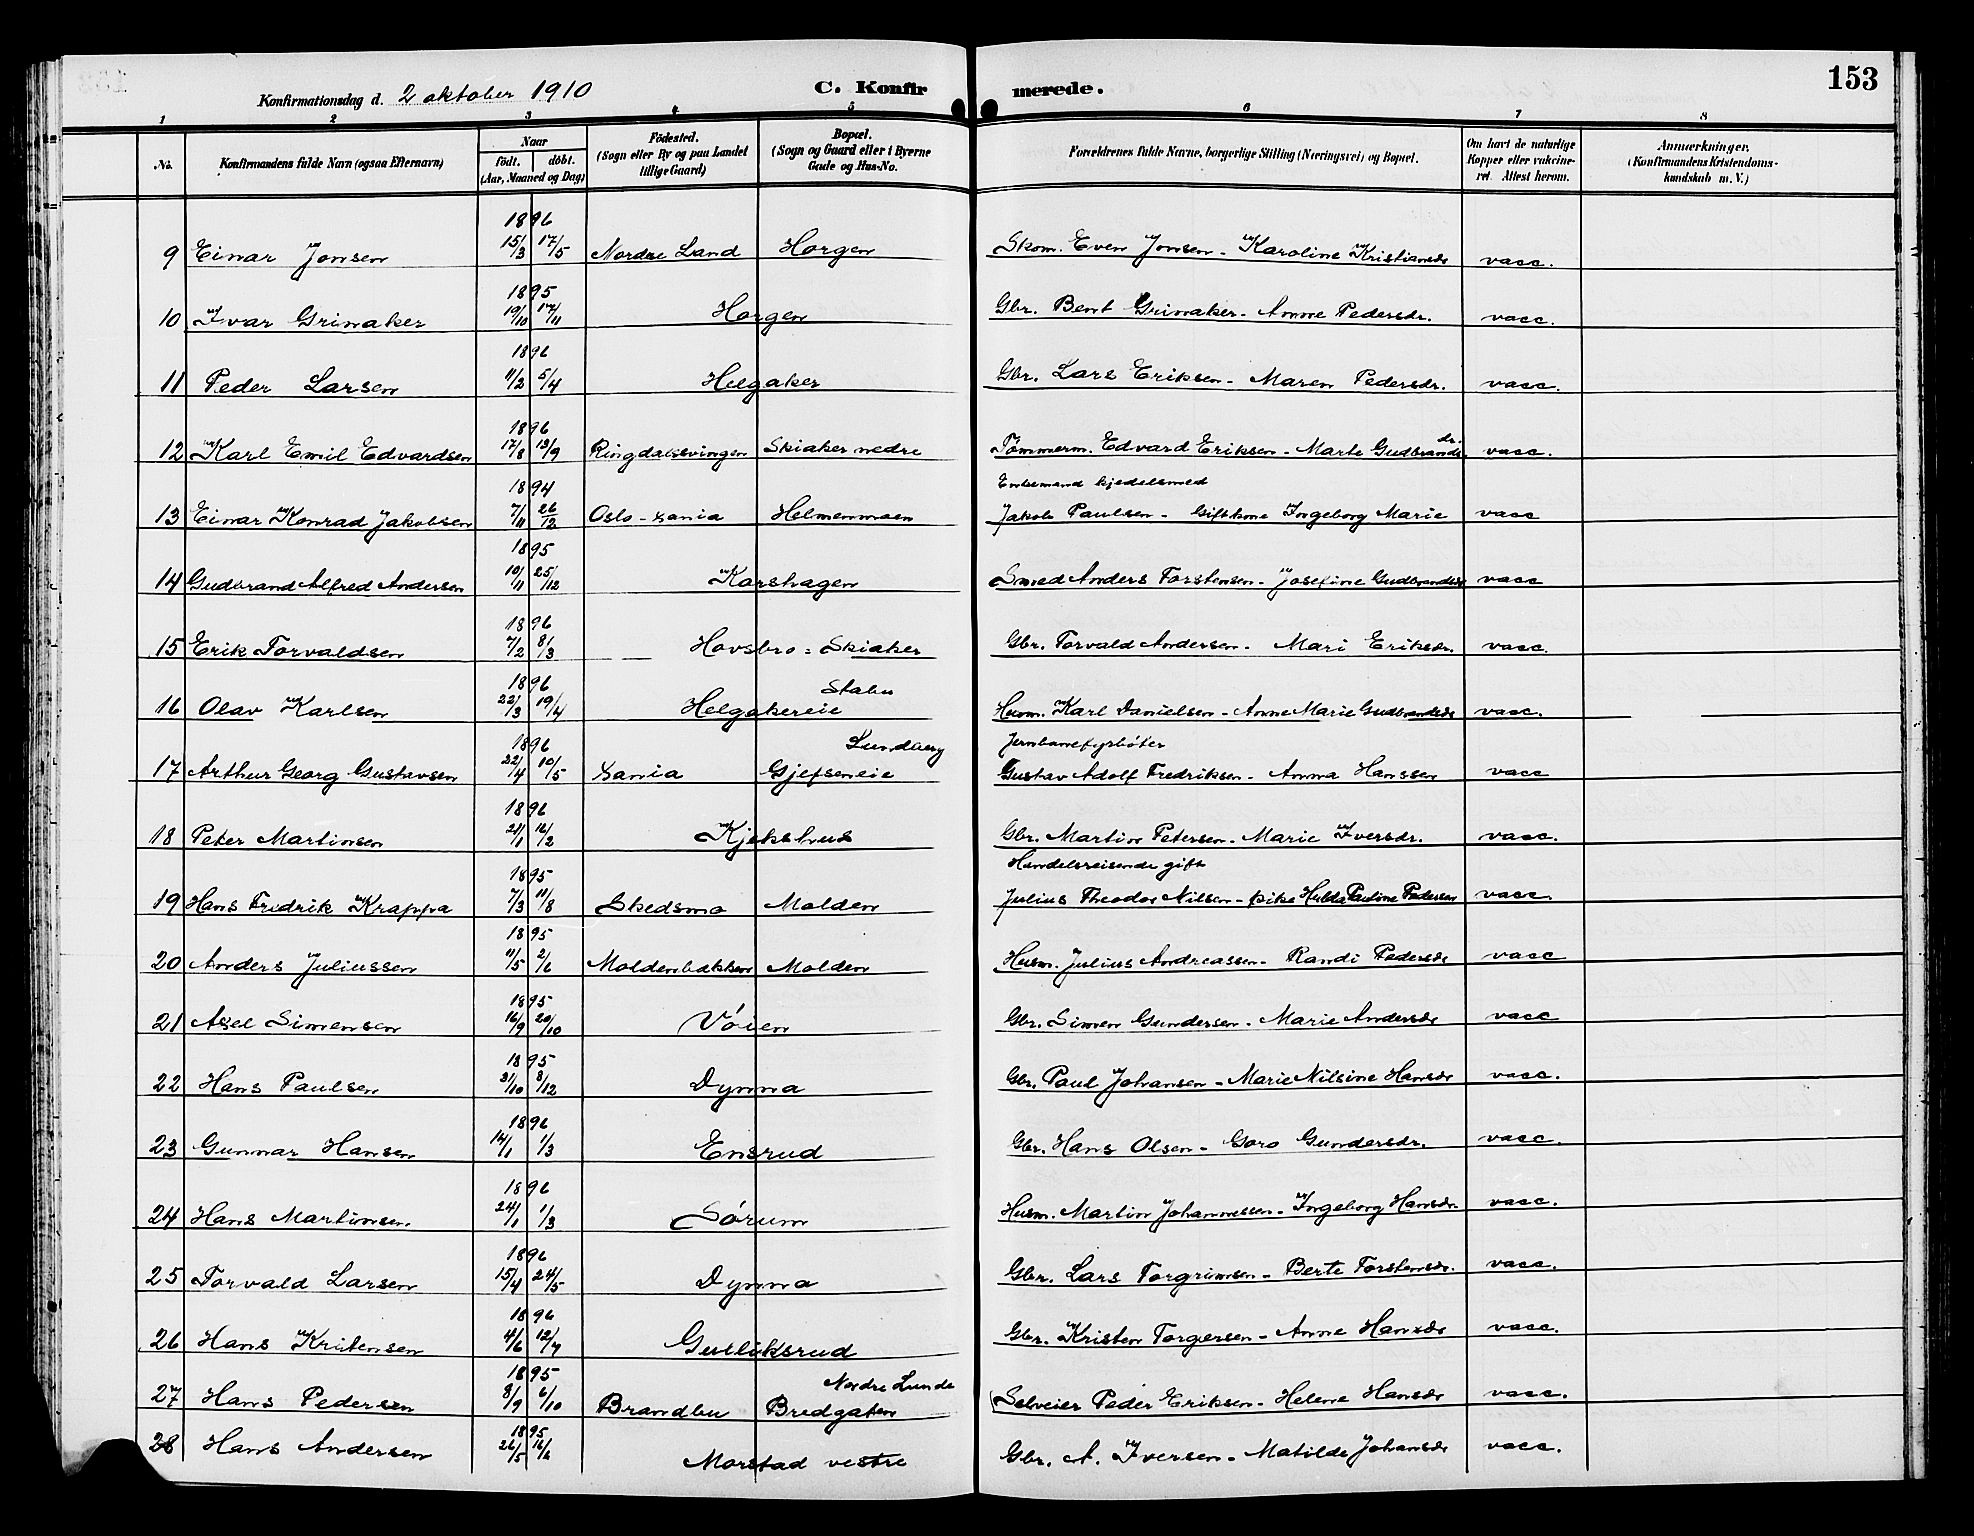 Konfirmationsdag d. 2 oktober 1910 C. Konfirmerede. 153
1 2 3 4 5 6 7 8
No. Konfirmandens fulde Navn (ogsaa Efternavn) Naar født. døbt. (Aar, Maaned og Dag) Födested. (Sogn eller By og paa Landet tillige Gaard) Bopæl. (Sogn og Gaard eller i Byerne Gade og Hus-No. Forældrenes fulde Navne, borgerlige Stilling (Næringsvei) og Bopæl. Om havt de naturlige Kopper eller vakcineret. Attest herom. Anmærkninger. (Konfirmandens Kristendomskundskab m. V.)
9 Einar Jonsen 1896 15/3 17/5 Nordre Land Horgen Skom. Even Jonsen - Karoline Kristiansdr vacc.
10 Ivar Grinaker 1895 19/10 17/11 Horgen Gbr. Bent Grinaker - Anne Pedersdr. vacc.
11 Peder Larsen 1896 11/2 5/4 Helgaker Gbr. Lars Eriksen - Maren Pedersdr. vacc.
12 Karl Emil Edvardsen 1896 17/8 13/9 Ringdalssvingen Skiaker nedre Tømmerm. Edvard Eriksen - Marte Gudbrandsdr. vacc.
Enkemand kjedelsmed
13 Einar Konrad Jakobsen 1894 7/11 26/12 Oslo - Xania Helmenmoen Jakob Paulsen - Giftkone Ingeborg Marie vacc
14 Gudbrand Alfred Andersen 1895 10/11 25/12 Korshagen Smed Anders Torstensen - Josefine Gudbrandsdr vacc
15 Erik Torvaldsen 1896 7/2 8/3 Hovsbro = Skiaker Gbr. Torvald Andersen - Mari Eriksdr. vacc.
Stabu
16 Olav Karlsen 1896 22/3 19/4 Helgakereie Husm. Karl Danielsen - Anne Marie Gudbrandsdr vacc.
Lundberg Jernbanefyrbøter
17 Arthur Georg Gustavsen 1896 22/4 10/5 Xania Gjefseneie Gustav Adolf Fredriksen - Anna Hanssen vacc
18 Peter Martinsen 1896 21/1 16/2 Kjekshus Gbr. Martin Petersen - Marie Iversdr. vacc.
Handelsreisende gift
19 Hans Fredrik Krappa 1895 7/3 11/8 Skedsmo Molden Julius Theodor Nilsen - pike Hulda Pauline Pedersen vacc.
20 Anders Juliussen 1895 11/5 2/6 Moldenbakken Molden Husm. Julius Andreassen - Randi Pedersdr vacc
21 Axel Simensen 1895 16/9 20/10 Vøien Gbr. Simen Gundersen - Marie Andersdr vacc
22 Hans Paulsen 1895 31/10 8/12 Dynna Gbr. Paul Johansen - Marie Nilsine Hansdr vacc.
23 Gunnar Hansen 1896 14/1 1/3 Ensrud Gbr. Hans Olsen - Goro Gundersdr. vacc.
24 Hans Martinsen 1896 24/1 1/3 Sørum Husm. Martin Johannessen - Ingeborg Hansdr. vacc.
25 Torvald Larsen 1896 15/4 24/5 Dynna Gbr. Lars Torgrimsen - Berte Torstensdr. vacc.
26 Hans Kristensen 1896 4/6 12/7 Gulliksrud Gbr. Kristen Torgersen - Anne Hansdr vacc.
Nordre Lunde
27 Hans Pedersen 1895 8/9 6/10 Brandbu Bredgaten Selveier Peder Eriksen - Helene Hansdr vacc.
28 Hans Andersen 1895 26/5 16/6 Morstad vestre Gbr. A. Iversen - Matilde Johansdr vacc.